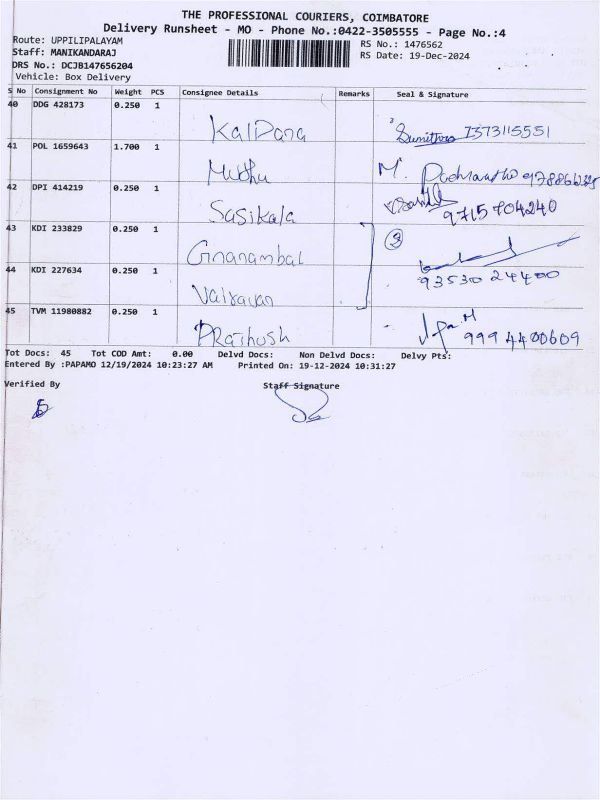 THE PROFESSIONAL COURIERS, COIMBATORE
Delivery Runsheet - MO - Phone No.:0422-3505555 - Page No.:4
Route: UPPILIPALAYAM
RS No.: 1476562
Staff: MANIKANDARAJ
RS Date: 19-Dec-2024
DRS No.: DCJB147656204
Vehicle: Box Delivery
S No Consignment No Weight PCS Consignee Details Remarks Seal & Signature
40 DDG 428173 0.250 1
Kalpana
41 POL 1659643 1.700 1
Muthu M.
42 DPI 414219 0.250 1
Sasikala 9715704240
43 KDI 233829 0.250 1
Gnanambal
44 KDI 227634 0.250 1 93530 24400
Vairavan
45 TVM 11980882 0.250 1
Prathush 9994400609
Tot Docs: 45 Tot COD Amt: 0.00 Delvd Docs: Non Delvd Docs: Delvy Pts:
Entered By :PAPAMO 12/19/2024 10:23:27 AM Printed On: 19-12-2024 10:31:27
Verified By Staff Signature